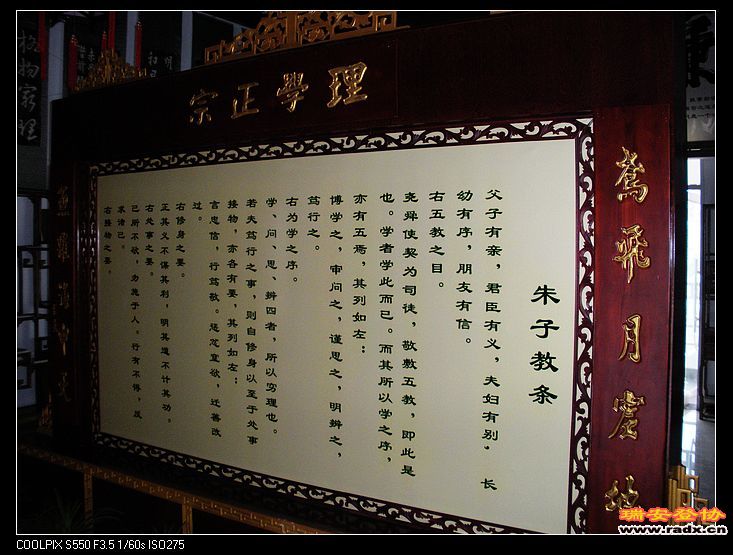 理學正宗
朱子教条
父子有亲，君臣有义，夫妇有别，长
幼有序，朋友有信。
右五教之目。
尧舜使契为司徒，敬敷五教，即此是
也。学者学此而已。而其所以学之序，
亦有五焉，其列如左：
博学之，审问之，谨思之，明辨之，
笃行之。
右为学之序。
学、问、思、辨四者，所以穷理也。
若夫笃行之事，则自修身以至于处事
接物，亦各有要，其列如左：
言忠信，行笃敬。惩忿窒欲，迁善改
过。
右修身之要。
正其义不谋其利，明其道不计其功。
右处事之要。
己所不欲，勿施于人。行有不得，反
求诸己。
右接物之要。
鸢飛月窟地
格物窮理
瑞安登协
www.radx.cn
COOLPIX S550 F3.5 1/60s ISO275